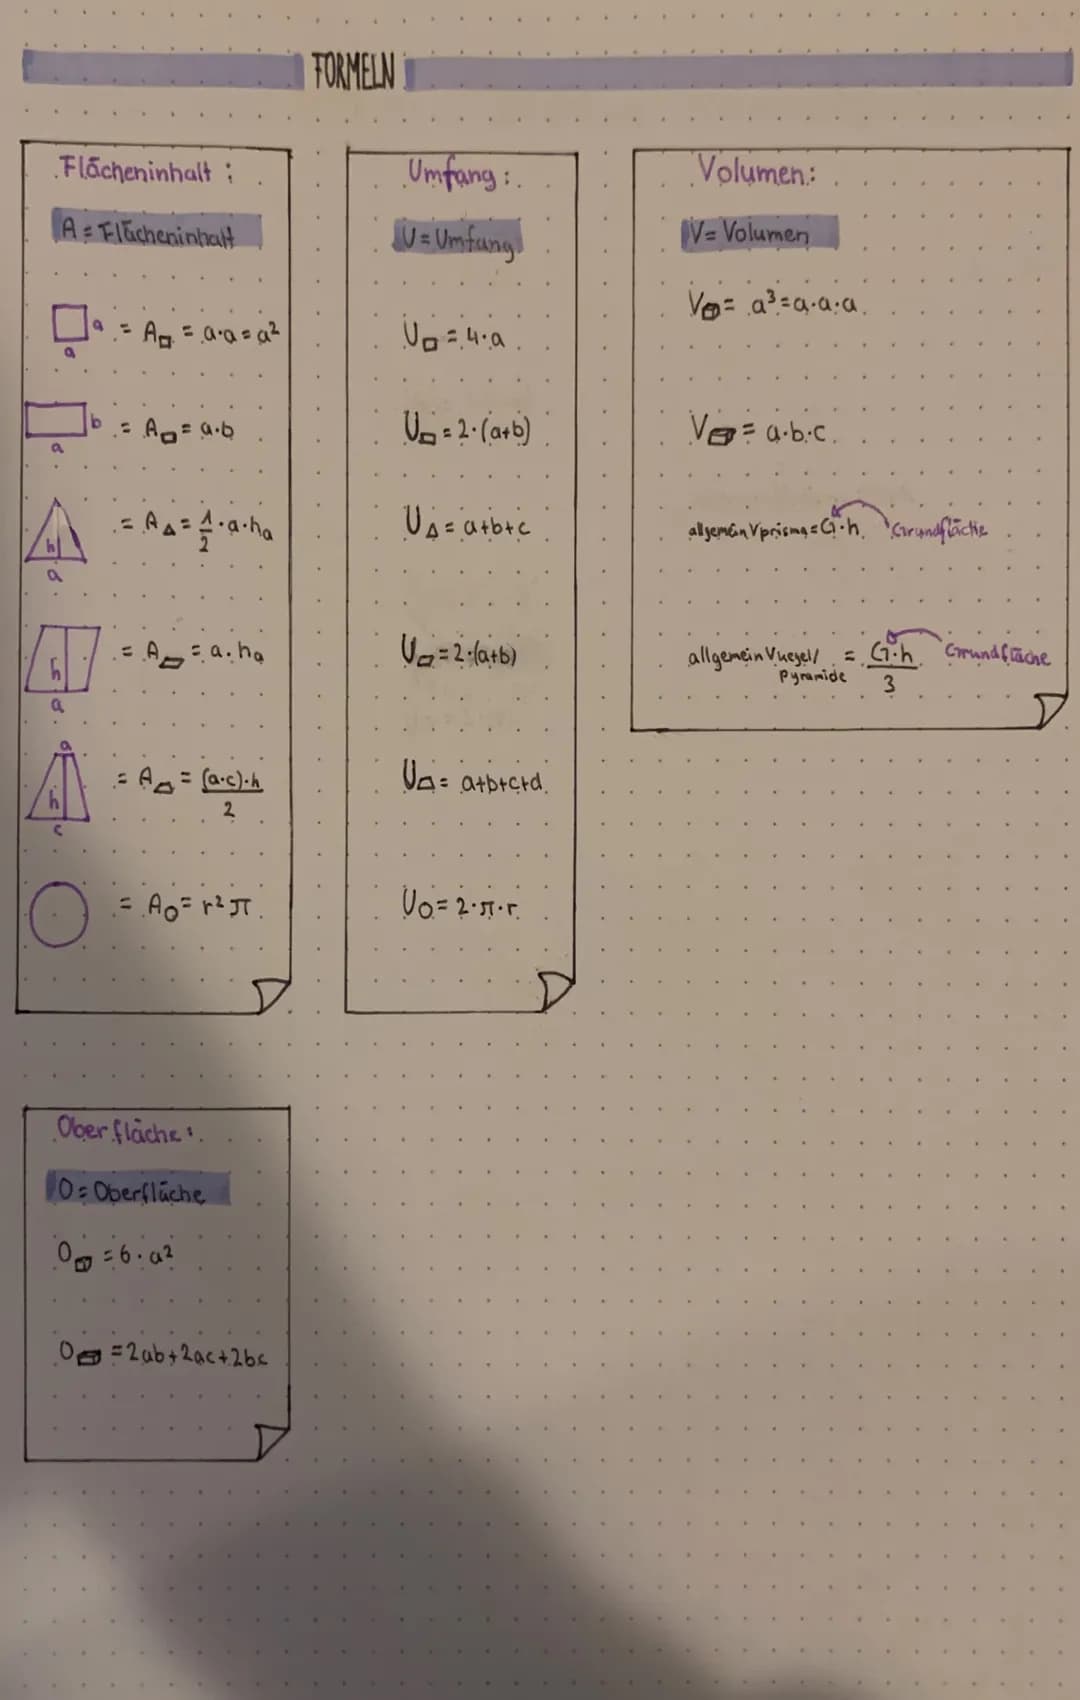 FORMELN
Flächeninhalt:
A = Flächeninhalt
a = A□ = a·a = a²
a
b = A▭ = a·b
a
h = A△ = 1/2 · a · hₐ
a
h = A▱ = a · hₐ
a
a
h = A⏢ = (a·c)·h / 2
c
= A○ = r² π
Umfang:
U = Umfang
U□ = 4·a
U▭ = 2·(a+b)
U△ = a+b+c
U▱ = 2·(a+b)
U⏢ = a+b+c+d
U○ = 2·π·r
Volumen:
V = Volumen
V = a³ = a·a·a
V = a·b·c
allgemein Vprisma = G·h Grundfläche
allgemein Vkegel/ Pyramide = G·h / 3 Grundfläche
Oberfläche:
O = Oberfläche
O = 6·a²
O = 2ab+2ac+2bc